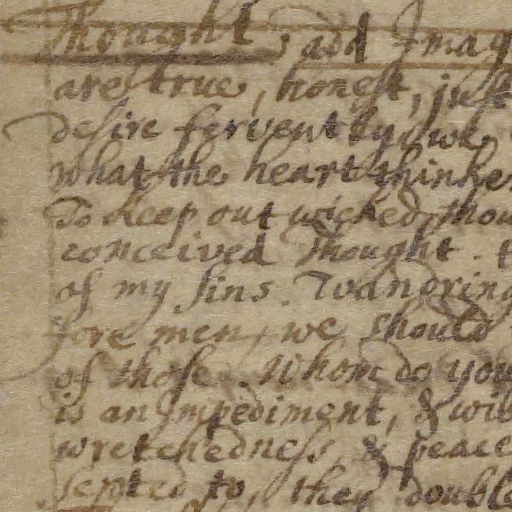 Thought, add Imag
are true, honest, just
desire fervently, we
what the heart thinke
To keep out wicked thou
conceived thought. t
of my sins. Wandring
fore men, we should
of those. Whom do you
is an Impediment, & wil
wretchedness, & peace
sented to, they double